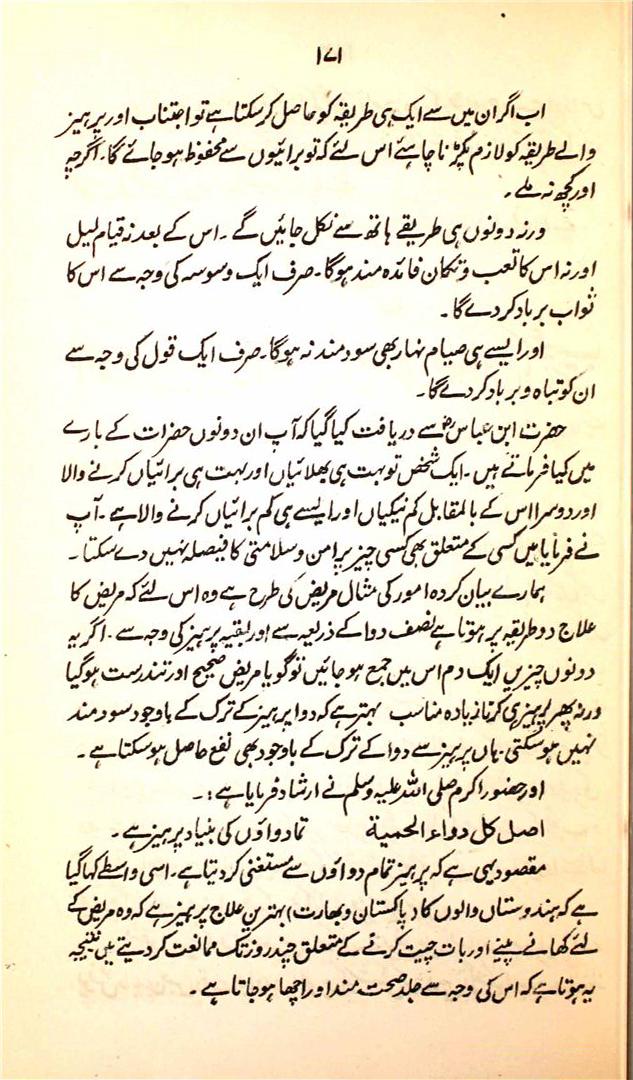 ۱۷۱
اب اگر ان میں سے ایک ہی طریقہ کو حاصل کر سکتا ہے تو اجتناب اور پرہیز
والے طریقہ کو لازم پکڑنا چاہئے اس لئے کہ تو برائیوں سے محفوظ ہو جائے گا۔ اگرچہ
اور کچھ نہ ملے۔
ورنہ دونوں ہی طریقے ہاتھ سے نکل جائیں گے۔ اس کے بعد نہ قیام لیل
اور نہ اس کا تعب و تکان فائدہ مند ہوگا۔ صرف ایک وسوسہ کی وجہ سے اس کا
ثواب برباد کر دے گا۔
اور ایسے ہی صیام نہار بھی سود مند نہ ہوگا۔ صرف ایک قول کی وجہ سے
ان کو تباہ و برباد کر دے گا۔
حضرت ابن عباسؓ سے دریافت کیا گیا کہ آپ ان دونوں حضرات کے بارے
میں کیا فرماتے ہیں۔ ایک شخص تو بہت ہی بھلائیاں اور بہت ہی برائیاں کرنے والا
اور دوسرا اس کے بالمقابل کم نیکیاں اور ایسے ہی کم برائیاں کرنے والا ہے۔ آپ
نے فرمایا میں کسی کے متعلق بھی کسی چیز پر امن و سلامتی کا فیصلہ نہیں دے سکتا۔
ہمارے بیان کردہ امور کی مثال مریض کی طرح ہے وہ اس لئے کہ مریض کا
علاج دو طریقہ پر ہوتا ہے نصف دوا کے ذریعہ سے اور بقیہ پرہیز کی وجہ سے۔ اگر یہ
دونوں چیزیں ایک دم اس میں جمع ہو جائیں تو گویا مریض صحیح اور تندرست ہو گیا
ورنہ پھر پرہیز ہی کرنا زیادہ مناسب بہتر ہے کہ دوا پرہیز کے ترک کے باوجود سود مند
نہیں ہو سکتی۔ ہاں پرہیز سے دوا کے ترک کے باوجود بھی نفع حاصل ہو سکتا ہے۔
اور حضور اکرم صلی اللہ علیہ وسلم نے ارشاد فرمایا ہے:۔
اصل كل دواء الحمية تما دواؤں کی بنیاد پرہیز ہے۔
مقصود یہی ہے کہ پرہیز تمام دواؤں سے مستغنی کر دیتا ہے۔ اسی واسطے کہا گیا
ہے کہ ہندوستاں والوں کا د پاکستان و بھارت) بہترین علاج پرہیز ہے کہ وہ مریض کے
لئے کھانے پینے اور بات چیت کرنے کے متعلق چند روز تک ممانعت کر دیتے ہیں نتیجہ
یہ ہوتا ہے کہ اس کی وجہ سے جلد صحت مند اور اچھا ہو جاتا ہے۔